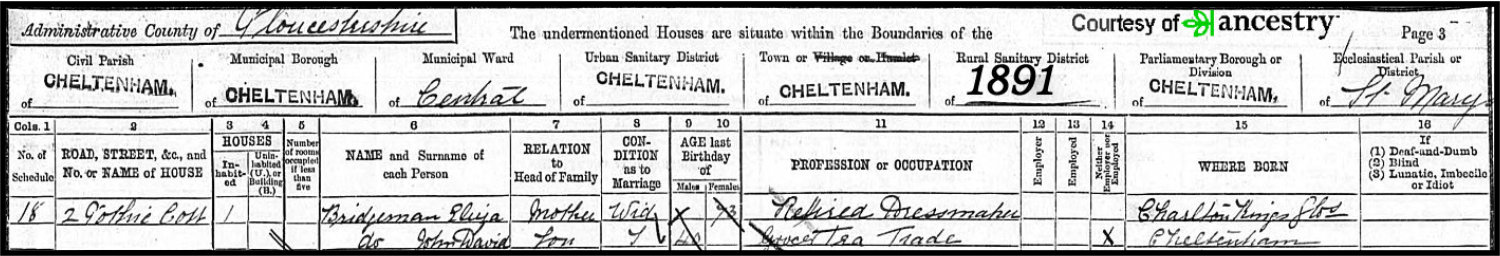 Administrative County of Gloucestershire The undermentioned Houses are situate within the Boundaries of the Courtesy of ancestry Page 3
Civil Parish Municipal Borough Municipal Ward Urban Sanitary District Town or Village or Hamlet Rural Sanitary District Parliamentary Borough or Division Ecclesiastical Parish or District
of CHELTENHAM. of CHELTENHAM. of Central of CHELTENHAM. of CHELTENHAM. of 1891 of CHELTENHAM. of St Marys
Cols. 1 2 3 4 5 6 7 8 9 10 11 12 13 14 15 16
No. of Schedule ROAD, STREET, &c., and No. or NAME of HOUSE HOUSES In-habit-ed Unin-habited (U.), or Building (B.) Number of rooms occupied if less than five NAME and Surname of each Person RELATION to Head of Family CON-DITION as to Marriage AGE last Birthday of Males Females PROFESSION or OCCUPATION Employer Employed Neither Employer nor Employed WHERE BORN If (1) Deaf-and-Dumb (2) Blind (3) Lunatic, Imbecile or Idiot
18 2 Gothic Cott 1 Bridgeman Eliza Mother Wid X 73 Retired Dressmaker Charlton Kings Glos
do John David Son 40 Grocer Tea Trade X Cheltenham